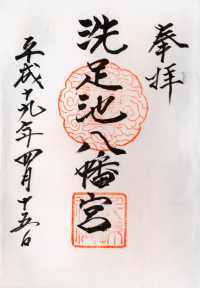 奉拝
洗足池八幡宮
平成十九年四月十五日